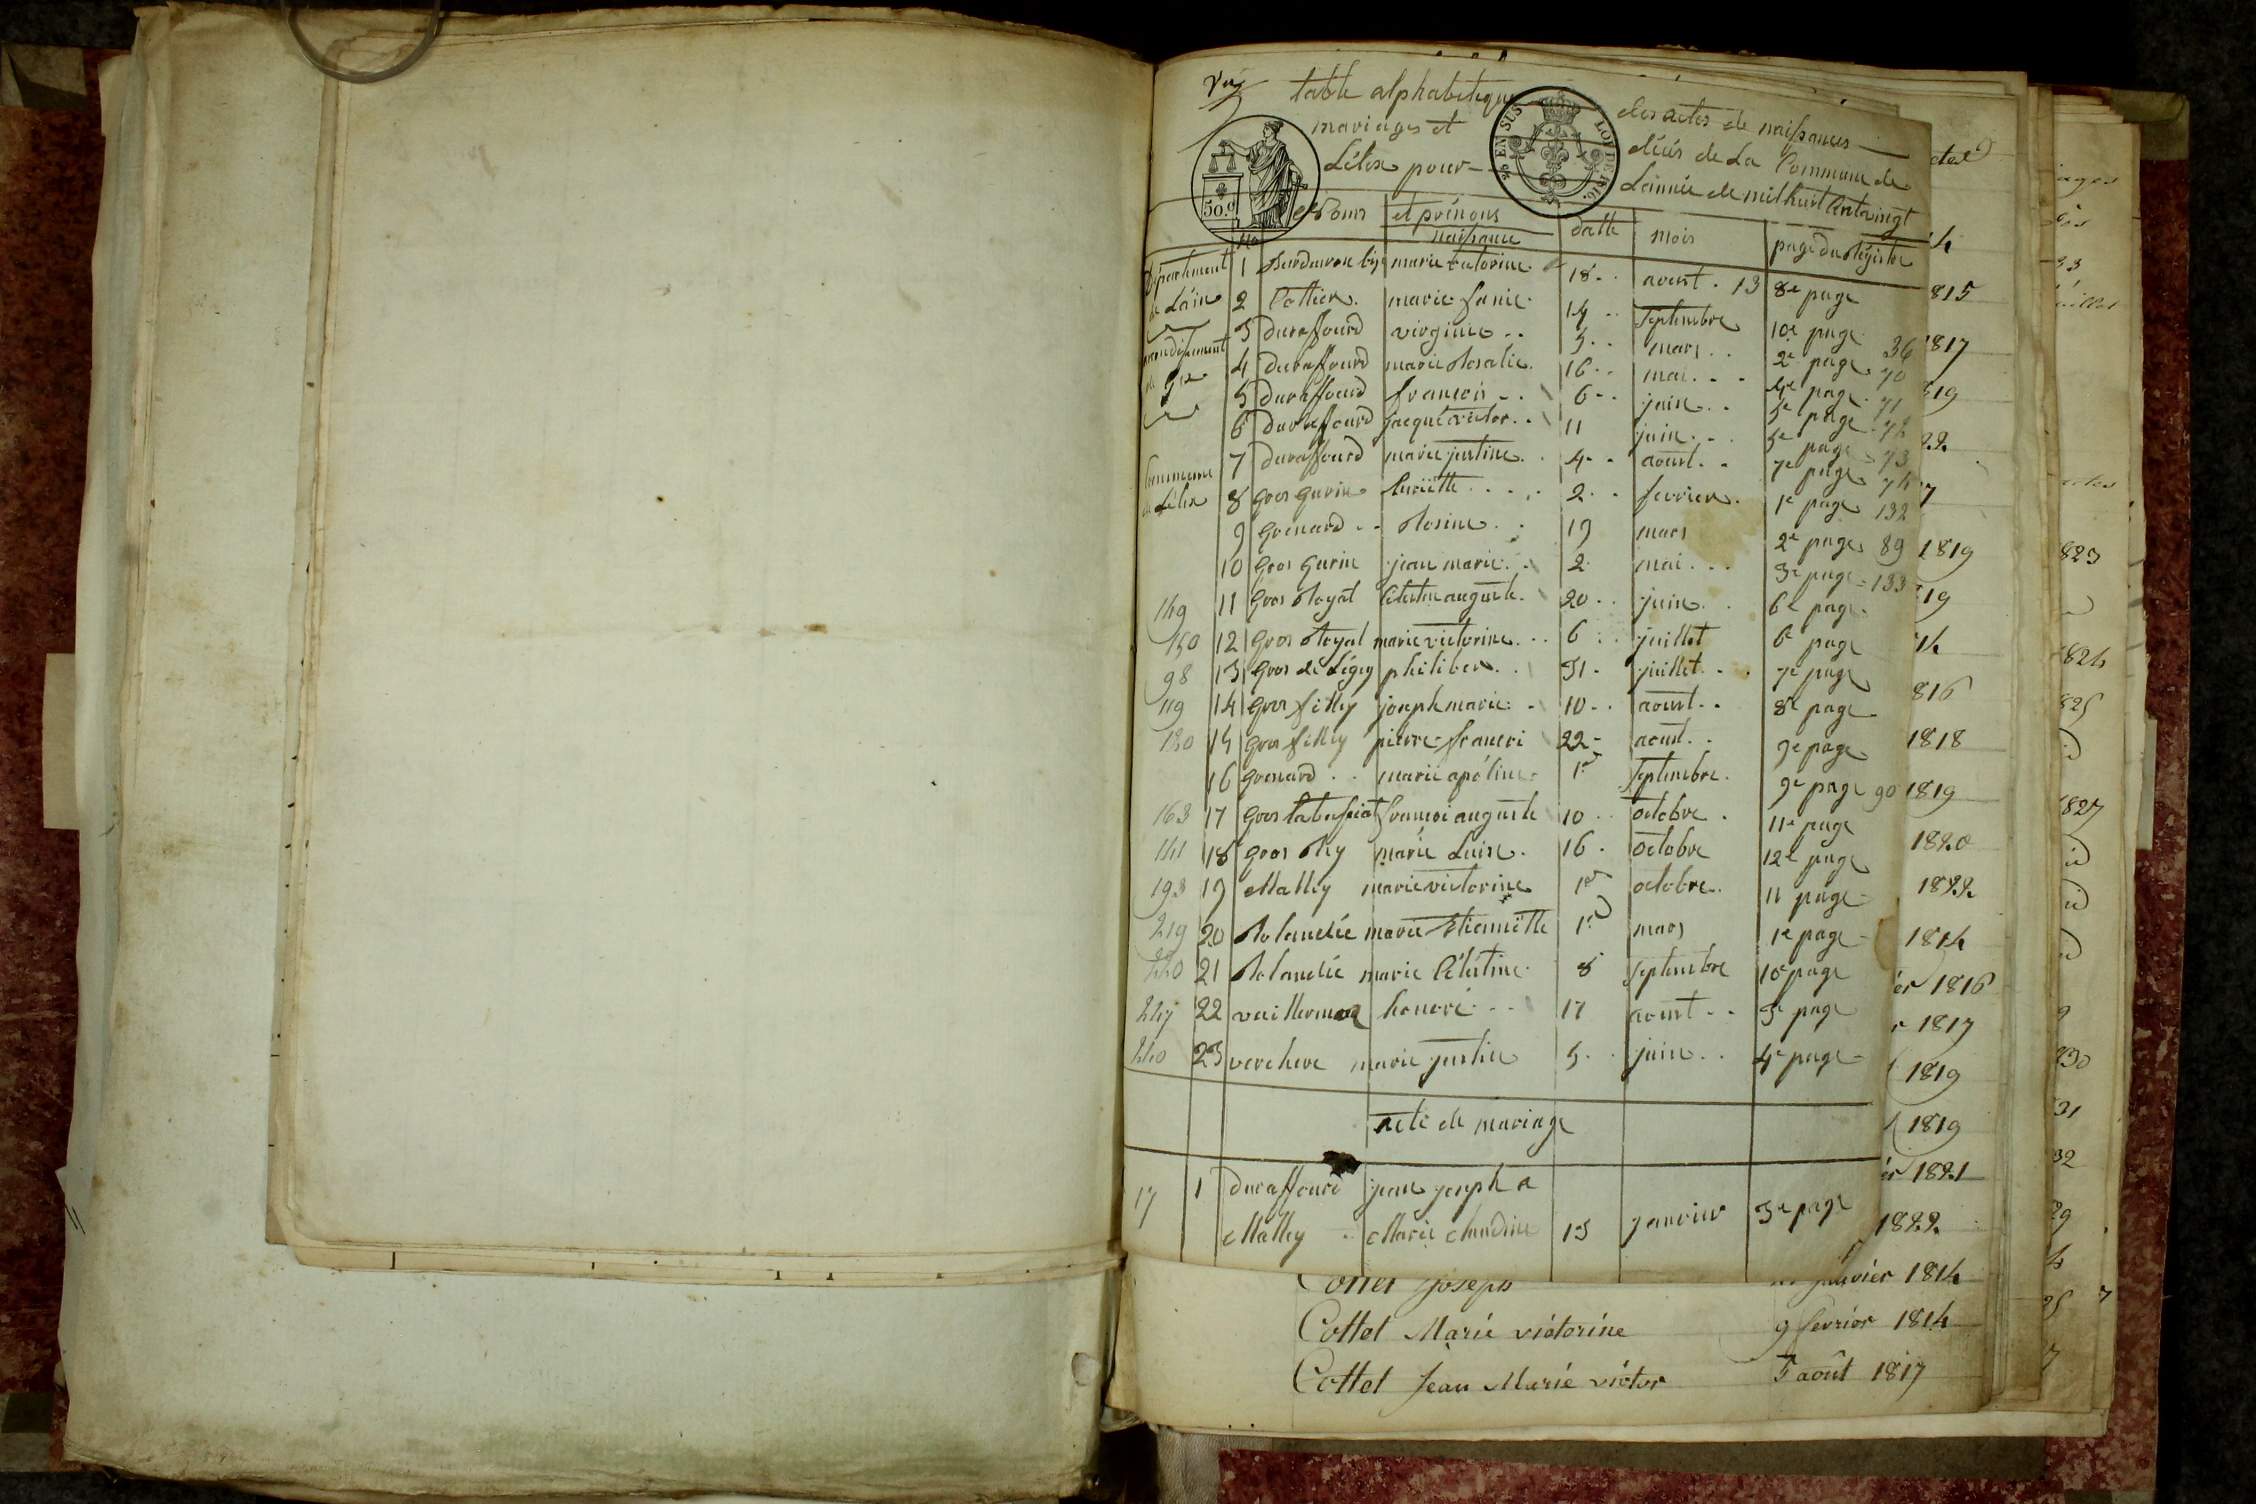 Vu
table alphabetique des actes de naissances
mariages et décès de La Commune de
Lélex pour L'année de mil huit Cent vingt
EN SUS LOI DE 1816.
50.c
No Noms et prénoms datte mois page du Régistre
naissance
Département de Lain
arrondissement de Gex
Commune de Lélex
1 marie victorine 18 aoust 13 8e page
2 Cottier marie fanie 14 septembre 10e page 36
3 duraffourd virginie 5 mars 2e page 70
4 duraffourd marie Rosalie 16 mai 4e page 71
5 duraffourd francois 6 juin 5e page 72
6 duraffourd jacque victor 11 juin 5e page 73
7 duraffourd marie justine 4 aoust 7e page 74
8 gros gurin 2 fevrier 1e page 132
9 grenard Rosine 19 mars 2e page 89
10 gros gurin jean marie 2 mai 3e page 133
149 11 gros Royat Celestin auguste 20 juin 6e page
150 12 gros Royat marie victorine 6 juillet 6e page
98 13 gros de Légey philiber 31 juillet 7e page
119 14 gros filley joseph marie 10 aoust 8e page
120 15 gros filley pierre francoi 22 aoust 9e page
16 grenard marie apoline 1er septembre 9e page 90
163 17 gros francoi auguste 10 octobre 11e page
141 18 gros Rey marie Luise 16 octobre 12e page
193 19 Malley marie victorine 1er octobre 11 page
219 20 Rolandéé marie Etiennette 1er mars 1e page
220 21 Rolandéé marie Céléstine 8 septembre 10e page
22 vuillermoz honoré 17 aoust 9e page
23 verchere marie justine 5 juin 4e page
acte de mariage
17 1 duraffourd jean joseph a
Malley Marie claudine 13 janvier 3e page
Cottet Joseph janvier 1814
Cottet Marie victorine 9 fevrier 1814
Cottet Jean Marie victor 5 août 1817
815
1817
819
1819
816
1818
1819
1820
1822
1814
er 1816
1817
1819
1819
er 1821
1822
823
824
825
827